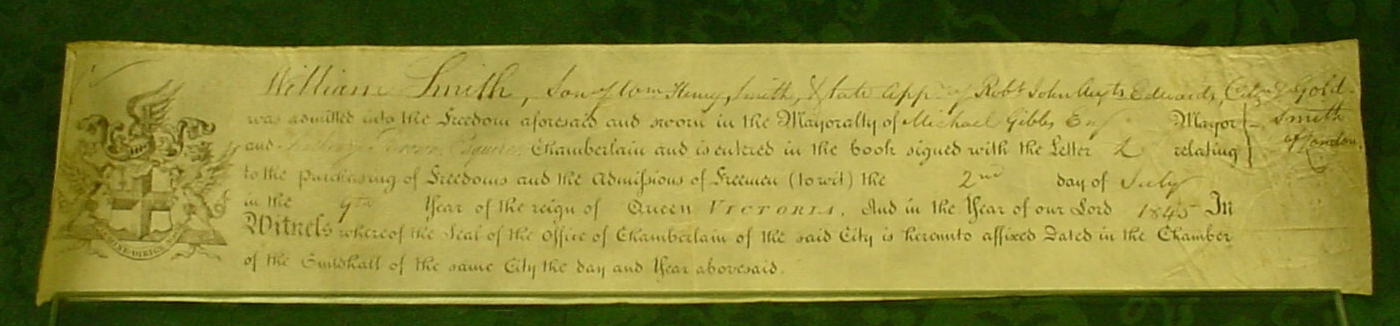 William Smith, Son of Wm Henry Smith, & late App. of Robt John Augts Edwards, Citn & Gold-
was admitted into the Freedom aforesaid and sworn in the Mayoralty of Michael Gibbs Esq Mayor Smith
and Anthony Brown Esquire Chamberlain and is entered in the book signed with the Letter relating of London.
to the purchasing of Freedoms and the Admissions of Freemen (to wit) the 2nd day of July
in the 9th Year of the reign of Queen VICTORIA, And in the Year of our Lord 1845 In
Witness whereof the Seal of the Office of Chamberlain of the said City is hereunto affixed Dated in the Chamber
of the Guildhall of the same City the day and Year abovesaid.